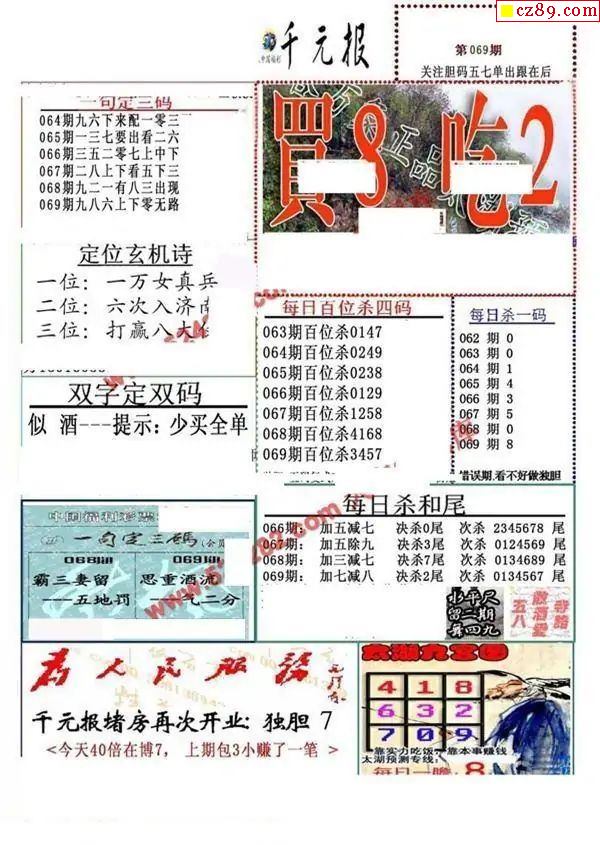 cz89.com
千元报
第069期
关注胆码五七单出跟在后
一句定三码
064期九六下来配一零三
065期一三七要出看二六
066期三五二零七上中下
067期二八上下看五下三
068期九二一有八三出现
069期九八六上下零无路
買8 吃2
定位玄机诗
一位：一万女真兵
二位：六次入济南
三位：打赢八大
每日百位杀四码
063期百位杀0147
064期百位杀0249
065期百位杀0238
066期百位杀0129
067期百位杀1258
068期百位杀4168
069期百位杀3457
每日杀一码
062 期 0
063 期 0
064 期 1
065 期 4
066 期 3
067 期 5
068 期 0
069 期 8
错误期,看不好做独胆
双字定双码
似 酒---提示：少买全单
每日杀和尾
066期： 加五减七 决杀0尾 次杀 2345678 尾
067期： 加五除九 决杀3尾 次杀 0124569 尾
068期： 加三减七 决杀7尾 次杀 0134689 尾
069期： 加七减八 决杀2尾 次杀 0134567 尾
中国福利彩票
一句定三码
068期 069期
霸三妻留 思重酒流
---五地罚 ---气二分
北平尺
留二期
舞四九
五八
散酒爱
寺路
为人民服务
千元报堵房再次开业：独胆 7
<今天40倍在博7， 上期包3小赚了一笔 >
太湖九宫图
4 1 8
6 3 2
7 0 9
靠实力吃饭，靠本事赚钱
太湖预测专线：
每日一胆 8